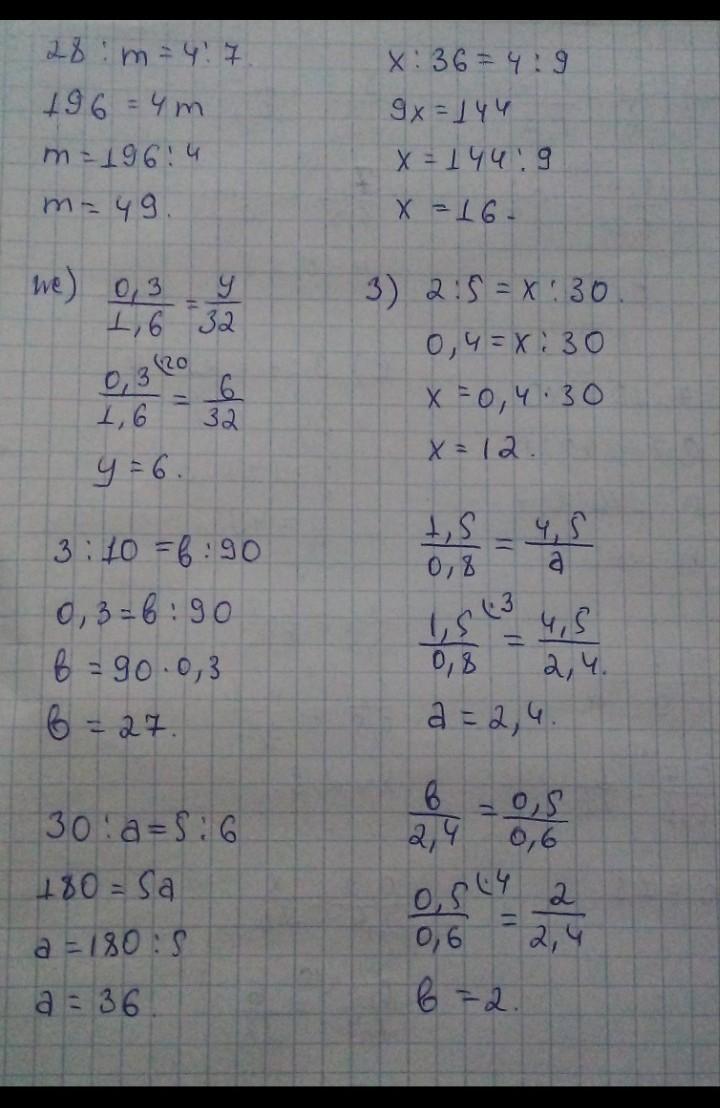 28 : m = 4 : 7.
196 = 4m
m = 196 : 4
m = 49.
x : 36 = 4 : 9
9x = 144
x = 144 : 9
x = 16.
ж) 0,3/1,6 = y/32
0,3/1,6 (·20 = 6/32
y = 6.
З) 2 : 5 = x : 30.
0,4 = x : 30
x = 0,4 · 30
x = 12.
3 : 10 = в : 90
0,3 = в : 90
в = 90 · 0,3
в = 27.
1,5/0,8 = 4,5/a
1,5/0,8 (·3 = 4,5/2,4.
a = 2,4.
30 : a = 5 : 6
180 = 5a
a = 180 : 5
a = 36.
в/2,4 = 0,5/0,6
0,5/0,6 (·4 = 2/2,4
в = 2.